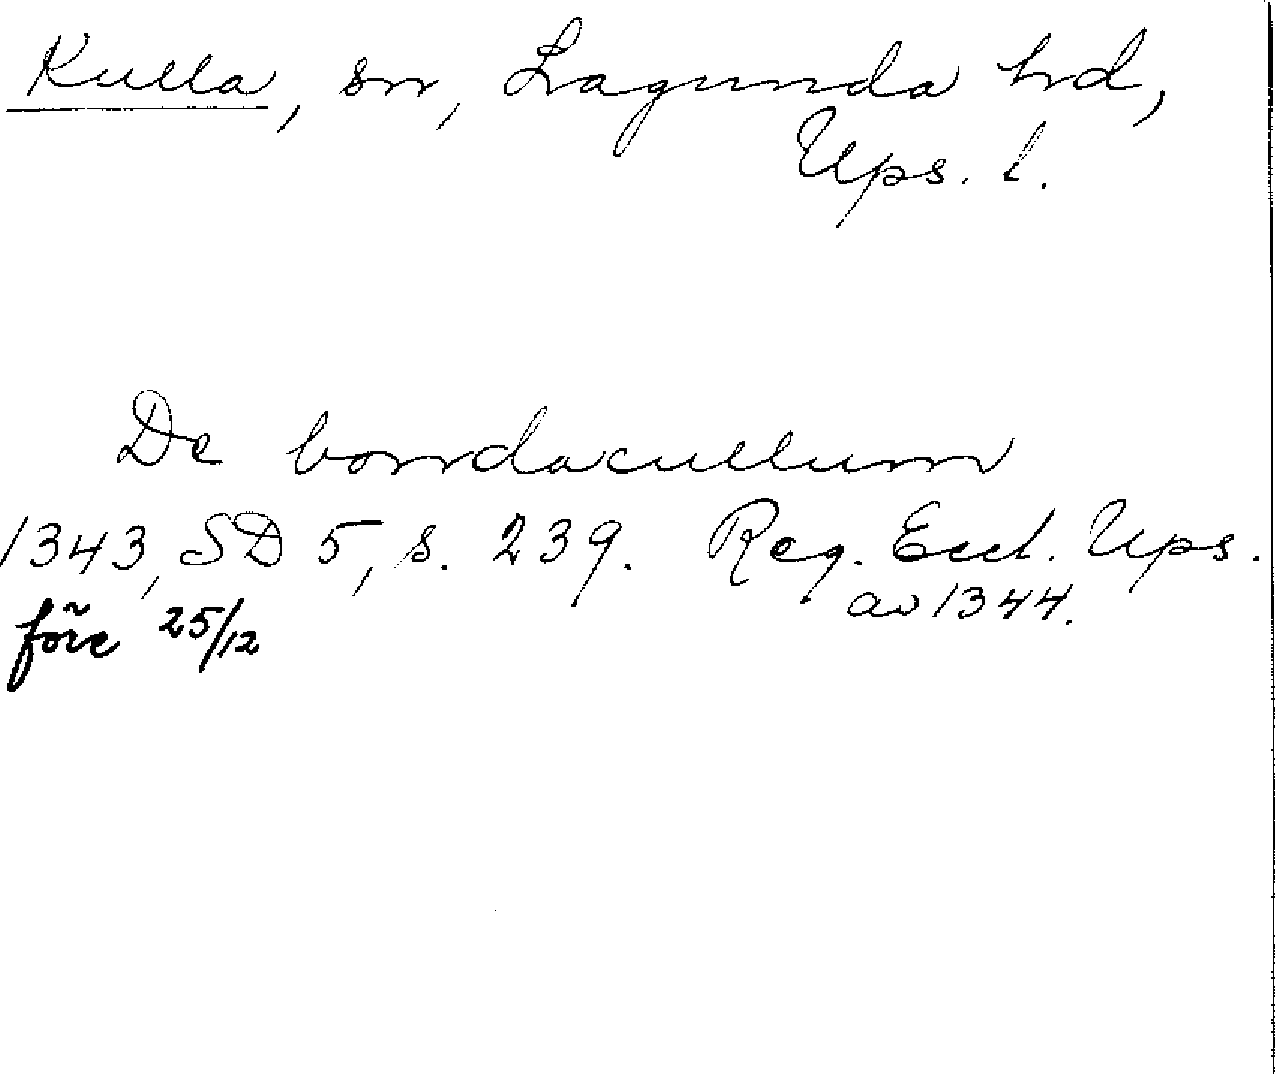 Kulla, sn, Lagunda hd,
Ups. l.
De bondacullum
1343, SD 5, s. 239. Reg. Eccl. Ups.
före 25/12 av 1344.